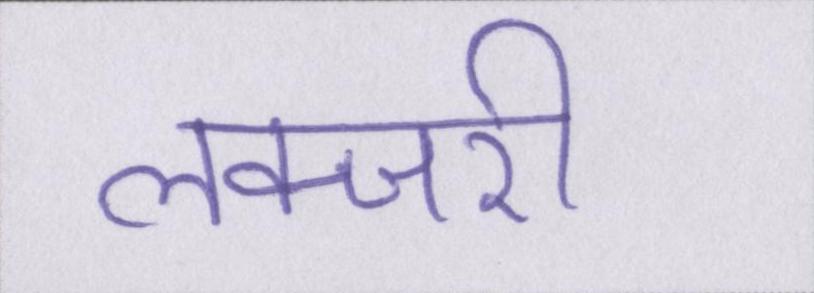 लक्जरी